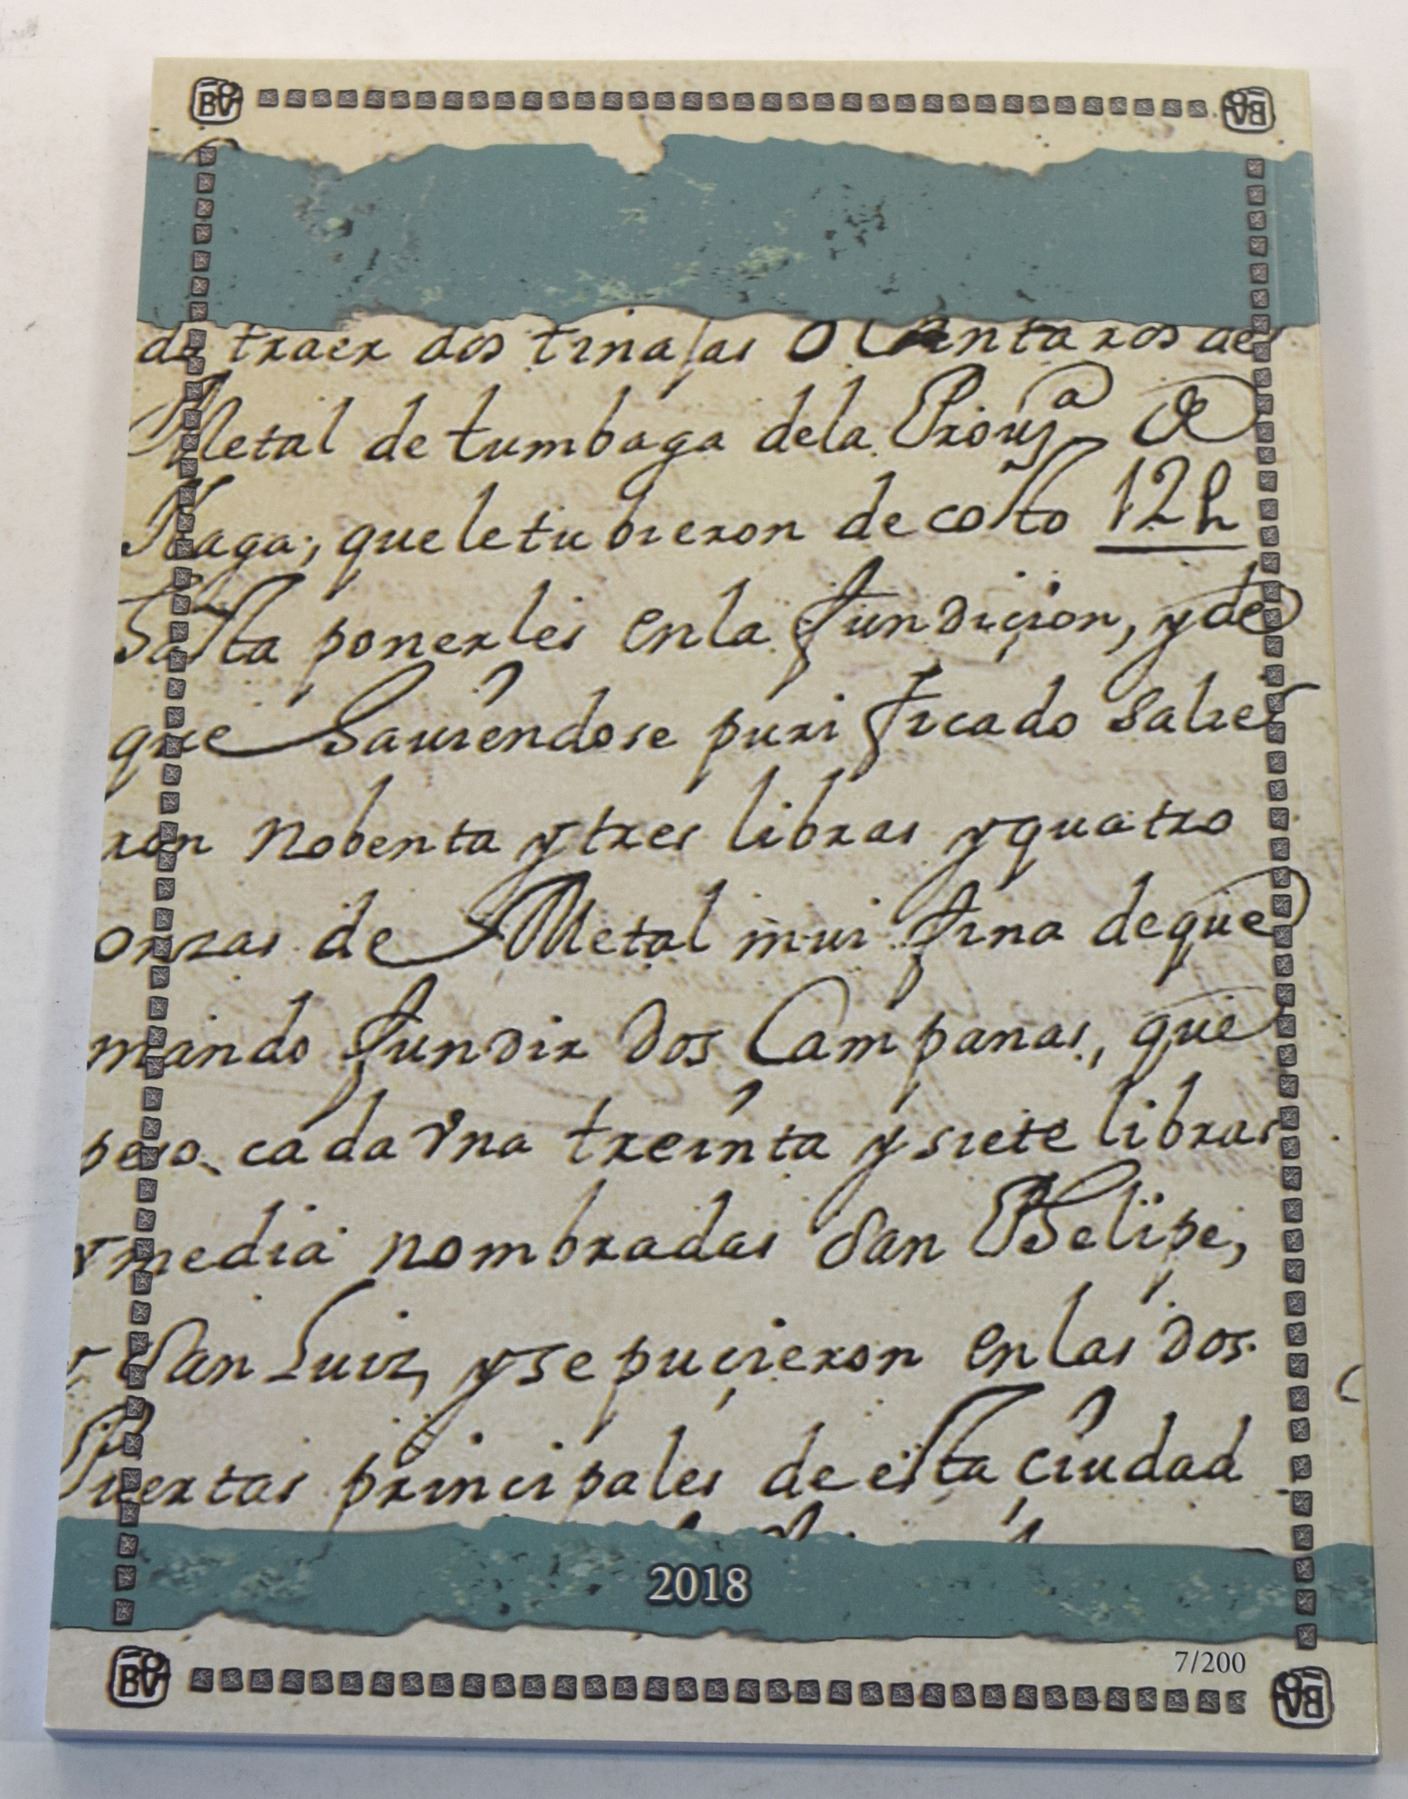 de traer dos tinajas o Cantaros de
Metal de tumbaga dela Prouª de
Ylaga; que le tubieron de costo 12 h
hasta ponerles en la fundiçion, y de
que hauiendose purificado salie
ron nobenta y tres libras y quatro
onzas de Metal mui fina de que
mando fundir dos Campanas, que
peso cada vna treinta y siete libras
y media nombradas San Phelipe,
y San Luiz, y se puçieron en las dos
Puertas principales de esta ciudad
2018
7/200